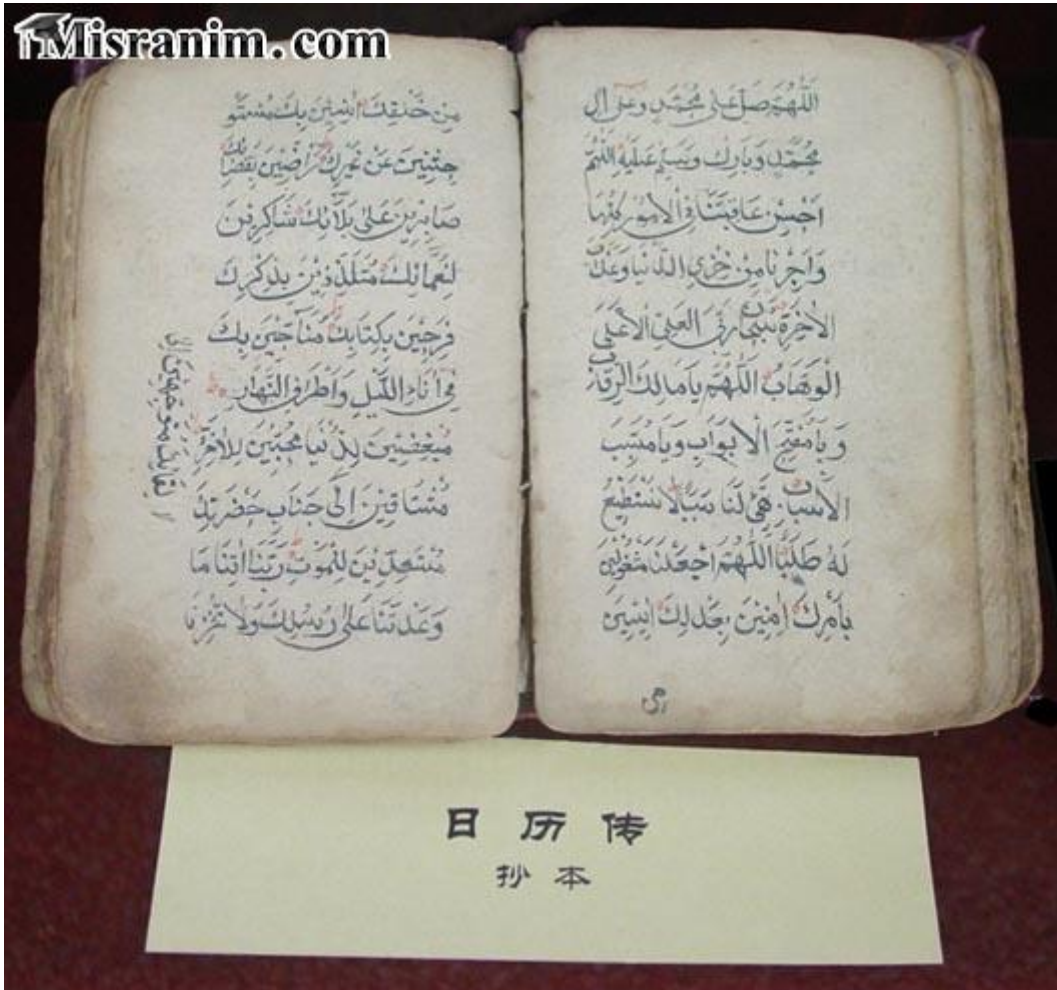 Misranim.com
اَللّٰهُمَّ صَلِّ عَلٰى مُحَمَّدٍ وَعَلٰى اٰلِ
مُحَمَّدٍ وَبَارِكْ وَسَلِّمْ عَلَيْهِ اَللّٰهُمَّ
اَحْسِنْ عَاقِبَتَنَا فِي الْاُمُورِ كُلِّهَا
وَاَجِرْنَا مِنْ خِزْيِ الدُّنْيَا وَعَذَابِ
الْاٰخِرَةِ سُبْحَانَ رَبِّيَ الْعَلِيِّ الْاَعْلَى
الْوَهَّابُ اَللّٰهُمَّ يَا مَالِكَ الرِّقَابِ
وَيَا مُفَتِّحَ الْاَبْوَابِ وَيَا مُسَبِّبَ
الْاَسْبَابِ هَيِّئْ لَنَا سَبَبًا لَا نَسْتَطِيعُ
لَهُ طَلَبًا اَللّٰهُمَّ اجْعَلْنَا مَشْغُولِينَ
بِاَمْرِكَ اٰمِنِينَ بِعَدْلِكَ اٰيِسِينَ
مِنْ خَلْقِكَ اٰنِسِينَ بِكَ مُسْتَوْ
حِشِينَ عَنْ غَيْرِكَ رَاضِينَ بِقَضَائِكَ
صَابِرِينَ عَلٰى بَلَائِكَ شَاكِرِينَ
لِنَعْمَائِكَ مُتَلَذِّذِينَ بِذِكْرِكَ
فَرِحِينَ بِكِتَابِكَ مُنَاجِينَ بِكَ
فِي اٰنَاءِ اللَّيْلِ وَاَطْرَافِ النَّهَارِ
مُبْغِضِينَ لِلدُّنْيَا مُحِبِّينَ لِلْاٰخِرَةِ
مُشْتَاقِينَ اِلٰى جَنَابِ حَضْرَتِكَ
مُسْتَعِدِّينَ لِلْمَوْتِ رَبَّنَا اٰتِنَا مَا
وَعَدْتَنَا عَلٰى رُسُلِكَ وَلَا تُخْزِنَا
日历传
抄本